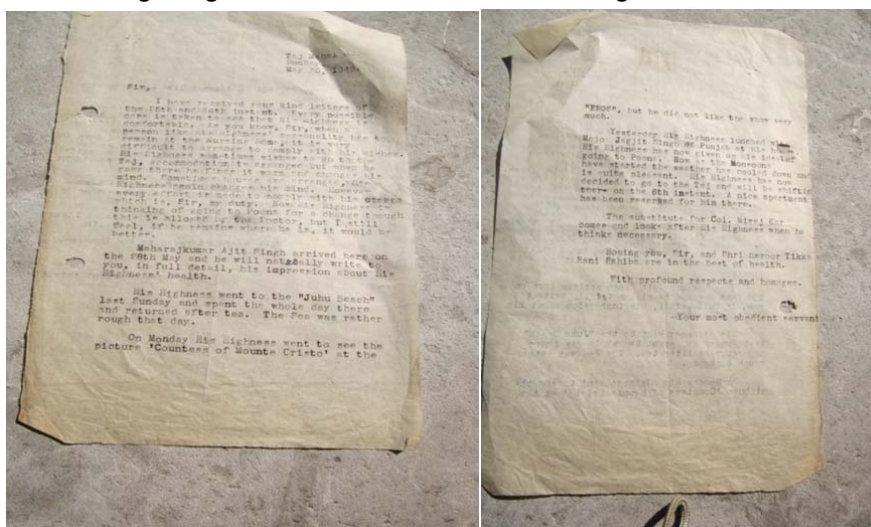 Taj Mahal
Bombay
May 30, 1949.
Sir,
I have received your kind letters of
the 25th and 26th instant. Every possible
care is taken to see that His Highness is
comfortable. As you know, Sir, when a
person like His Highness' personality has to
remain at the Nursing Home, it is very
difficult to arrange to comply with his wishes.
His Highness sometimes wishes to go to the
Taj, accommodation is arranged but when he
goes there he finds it warm and changes his
mind. Sometimes is arranged, His
Highness again changes his mind. However
every effort is made to comply with his wishes
which is, Sir, my duty. Now His Highness is
thinking of going to Poona for a change though
this is allowed by the Doctor, but I still
feel, if he remains where he is, it would be
better.
Maharajkumar Ajit Singh arrived here on
the 28th May and he will naturally write to
you, in full detail, his impression about His
Highness' health.
His Highness went to the "Juhu Beach"
last Sunday and spent the whole day there
and returned after tea. The Sea was rather
rough that day.
On Monday His Highness went to see the
picture 'Countess of Mounte Cristo' at the
"EROS", but he did not like the show very
much.
Yesterday His Highness lunched with
Major Jagjit Singh of Punjab at his house.
His Highness has now given up his idea of
going to Poona. Now as the Monsoons
have started the weather has cooled down and
is quite pleasant. His Highness has now
decided to go to the Taj and will be shifting
there on the 6th instant. A nice apartment
has been reserved for him there.
The substitute for Col. Niraj Kar
comes and looks after His Highness when he
thinks necessary.
Hoping you, Sir, and Shri Tikka
Rani Sahiba are in the best of health.
With profound respects and homages.
Your most obedient servant